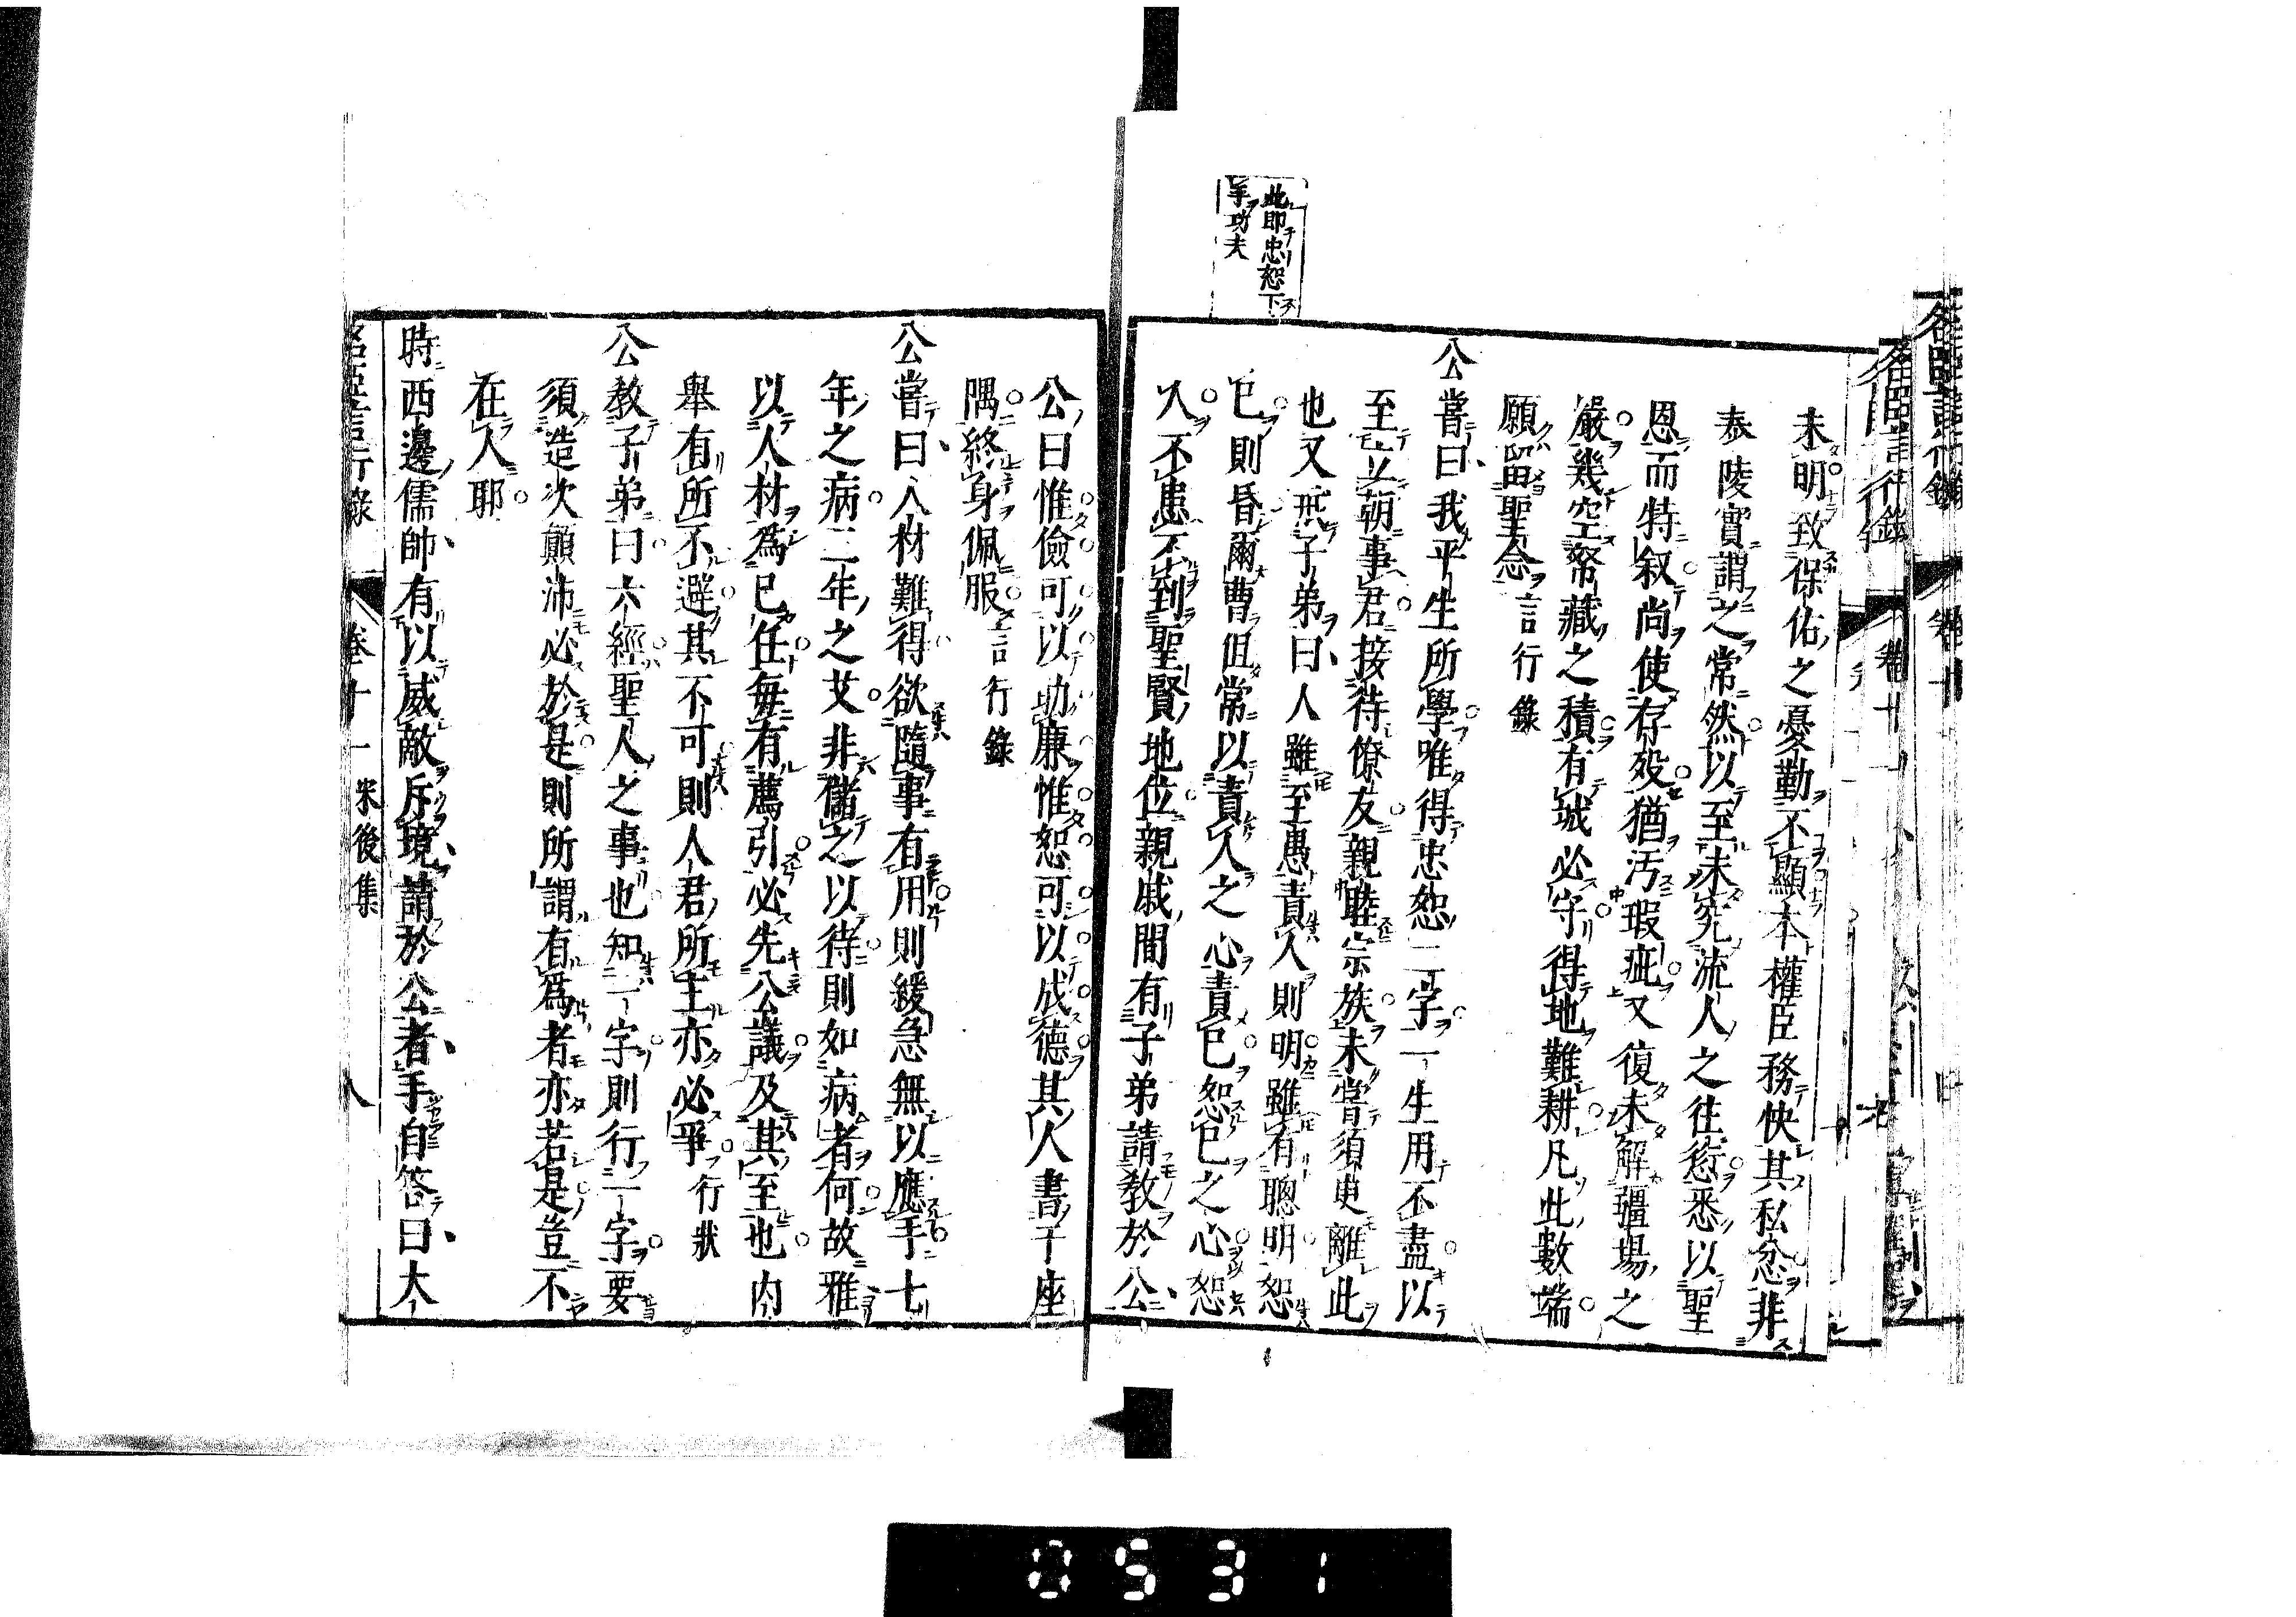 此即忠恕下
手功夫
未明致保佑之憂勤不顯本權臣務快其私忿非
泰陵實謂之常然以至未究流人之往愆悉以聖
恩而特叙尚使存歿猶汚瑕疵又復未解疆場之
嚴幾空帑藏之積有城必守得地難耕凡此數端
願留聖念言行錄
公嘗曰我平生所學唯得忠恕二字一生用不盡以
至立朝事君接待僚友親睦宗族未嘗須臾離此
也又戒子弟曰人雖至愚責人則明雖有聰明恕
己則昏爾曹但常以責人之心責己恕己之心恕
人不患不到聖賢地位親戚間有子弟請教於公
公曰惟儉可以助廉惟恕可以成德其人書于座
隅終身佩服言行錄
公嘗曰人材難得欲隨事有用則緩急無以應手七
年之病三年之艾非儲之以待則如病者何故雅
以人材爲己任每有薦引必先公議及其至也内
舉有所不避其不可則人君所主亦必爭行狀
公教子弟曰六經聖人之事也知一字則行一字要
須造次顛沛必於是則所謂有爲者亦若是豈不
在人耶
時西邊儒帥有以威敵斥境請於公者手自答曰大
名臣言行錄 卷十一 宋後集 八
0531